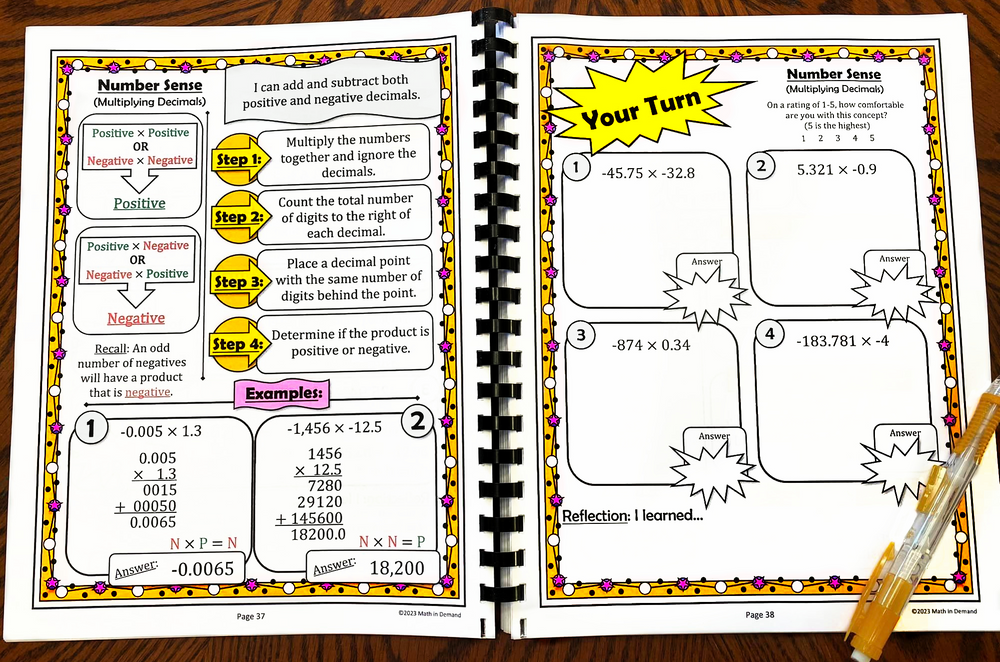 Number Sense
(Multiplying Decimals)
I can add and subtract both
positive and negative decimals.
Positive × Positive
OR
Negative × Negative
Positive
Positive × Negative
OR
Negative × Positive
Negative
Recall: An odd
number of negatives
will have a product
that is negative.
Step 1:
Multiply the numbers
together and ignore the
decimals.
Step 2:
Count the total number
of digits to the right of
each decimal.
Step 3:
Place a decimal point
with the same number of
digits behind the point.
Step 4:
Determine if the product is
positive or negative.
Examples:
1
-0.005 × 1.3
0.005
× 1.3
0015
+ 00050
0.0065
N × P = N
Answer:
-0.0065
2
-1,456 × -12.5
1456
× 12.5
7280
29120
+ 145600
18200.0
N × N = P
Answer:
18,200
Page 37
©2023 Math in Demand
Your Turn
Number Sense
(Multiplying Decimals)
On a rating of 1-5, how comfortable
are you with this concept?
(5 is the highest)
1 2 3 4 5
1
-45.75 × -32.8
Answer
2
5.321 × -0.9
Answer
3
-874 × 0.34
Answer
4
-183.781 × -4
Answer
Reflection: I learned...
Page 38
©2023 Math in Demand